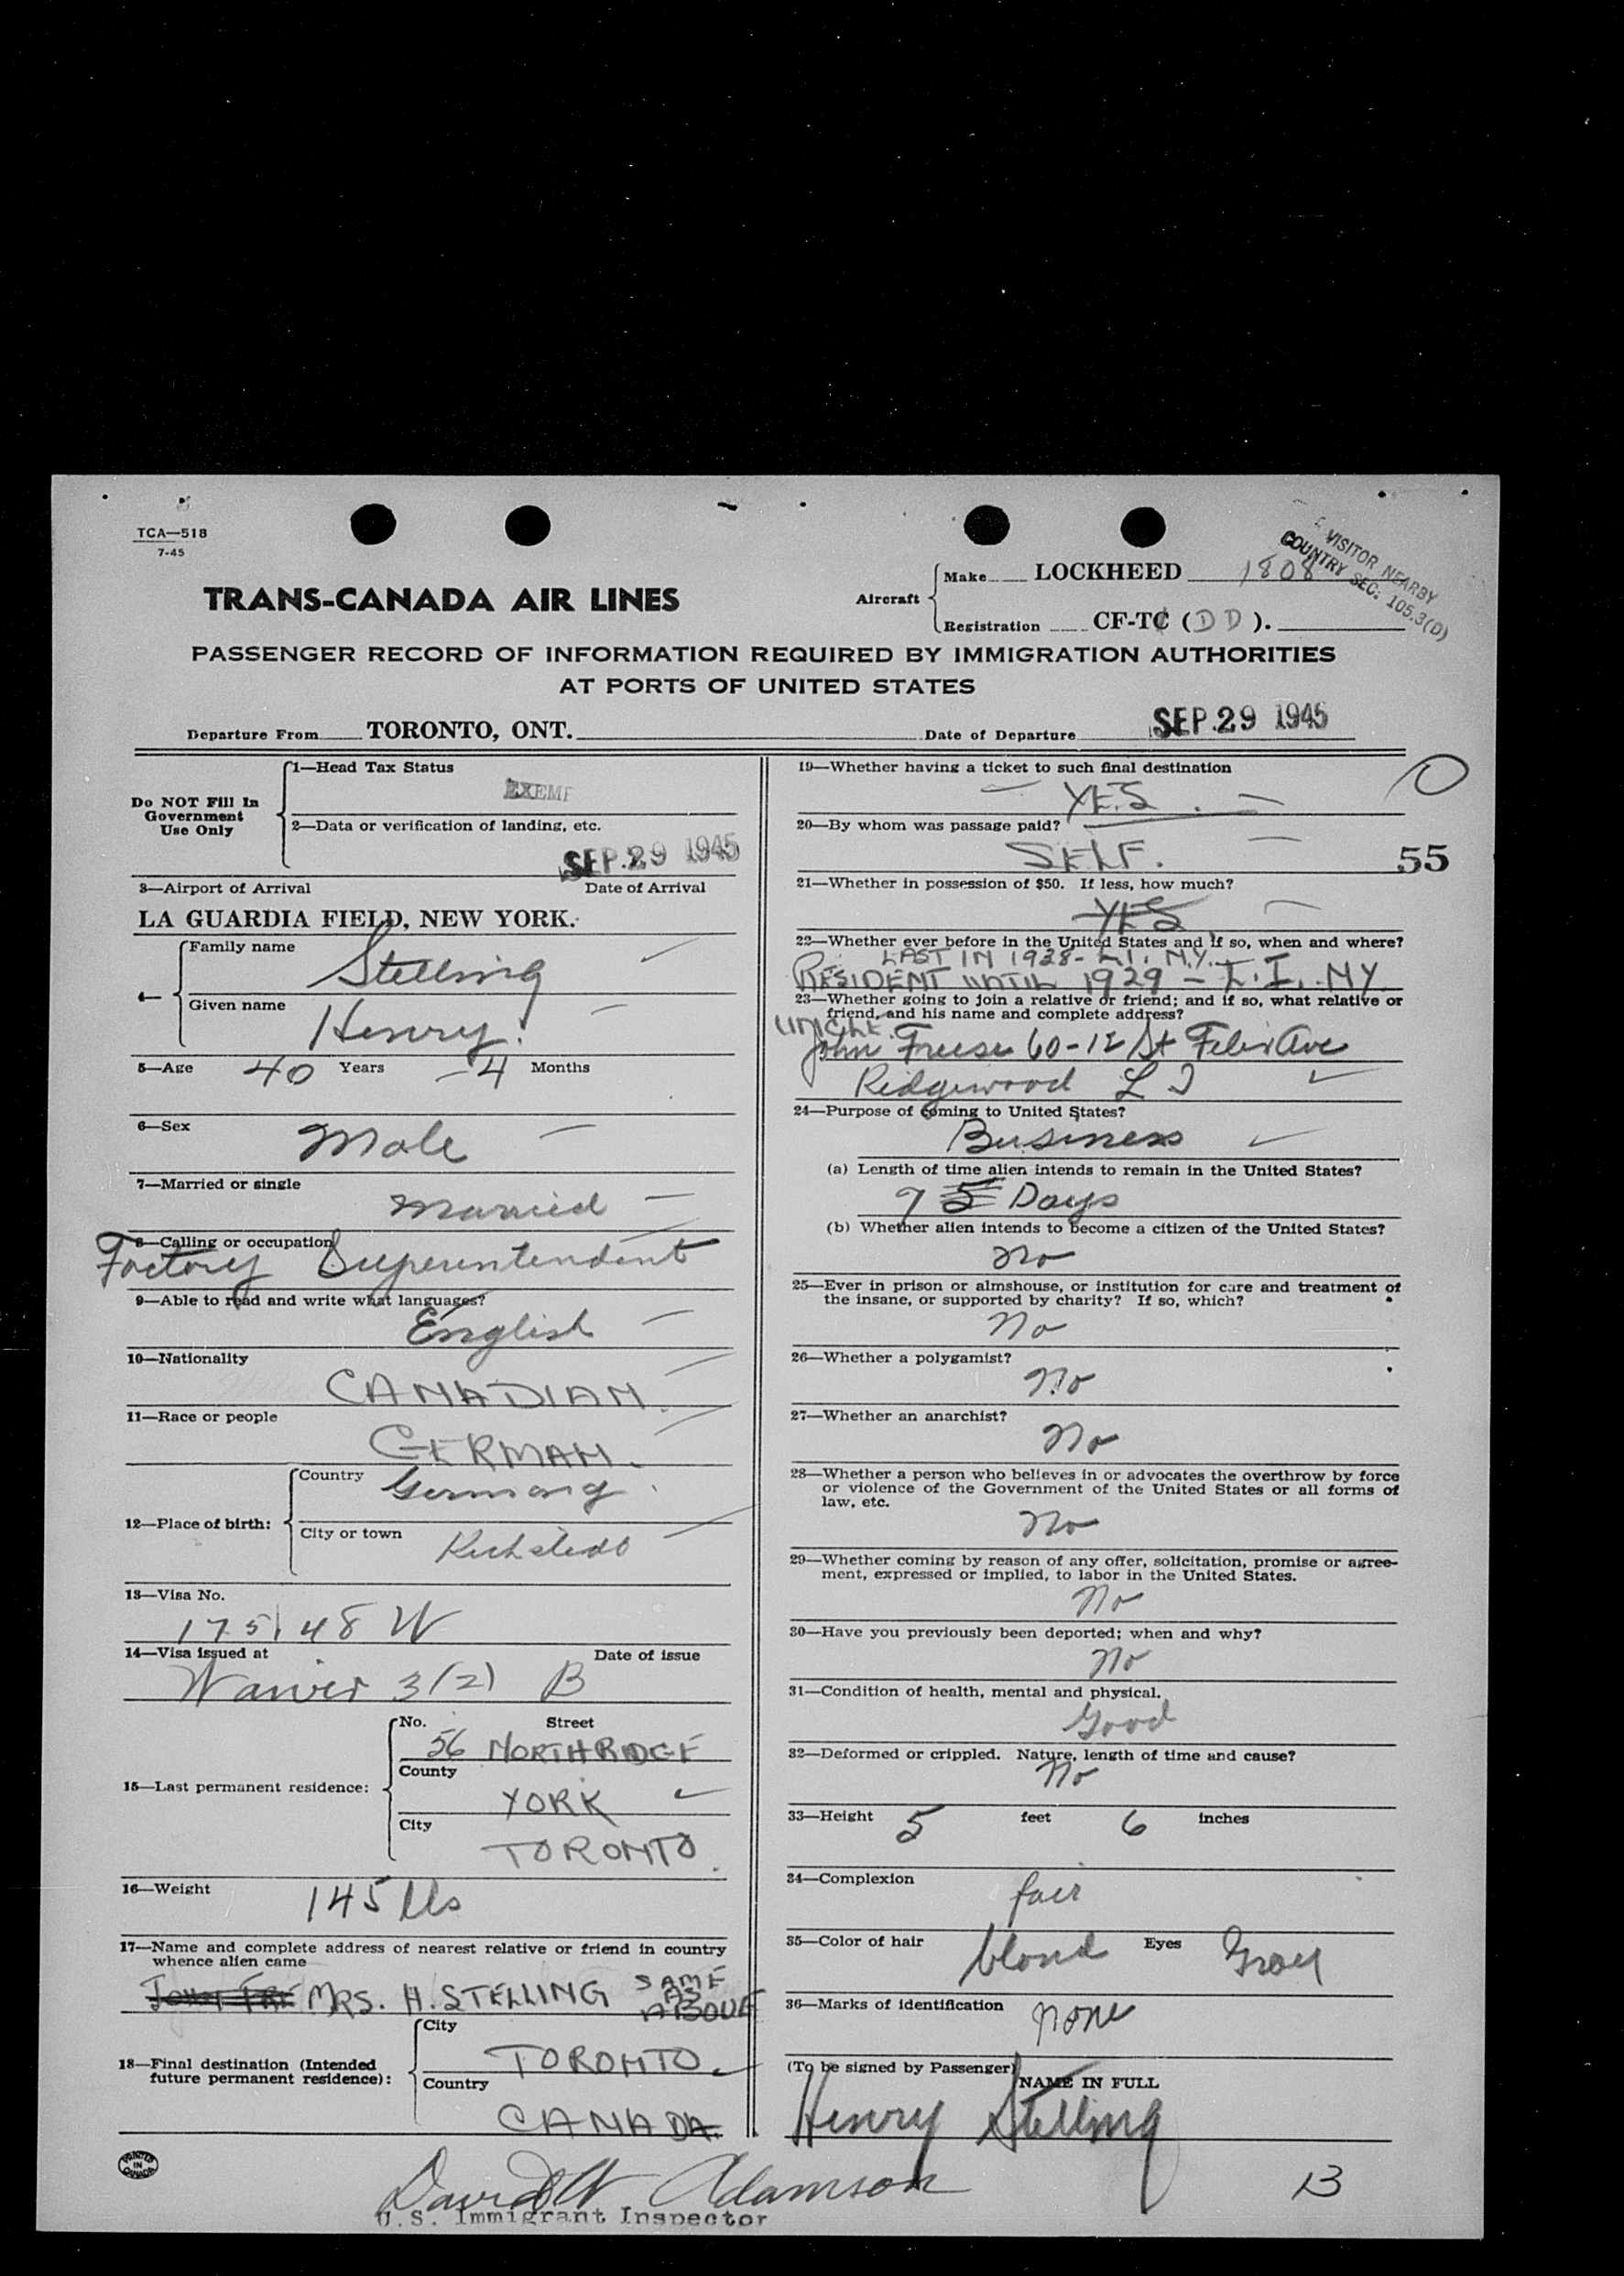 TCA—518
7-45
VISITOR NEARBY
COUNTRY SEC. 105.3(D)
TRANS-CANADA AIR LINES
Aircraft
Make LOCKHEED 1808
Registration CF-TC (DD).
PASSENGER RECORD OF INFORMATION REQUIRED BY IMMIGRATION AUTHORITIES
AT PORTS OF UNITED STATES
Departure From TORONTO, ONT. Date of Departure SEP. 29 1945
Do NOT Fill In
Government
Use Only
1—Head Tax Status
EXEMP
2—Data or verification of landing, etc.
SEP. 29 1945
3—Airport of Arrival Date of Arrival
LA GUARDIA FIELD, NEW YORK.
4—
Family name Stelling
Given name Henry.
5—Age 40 Years 4 Months
6—Sex Male
7—Married or single
Married
8—Calling or occupation
Factory Superintendent
9—Able to read and write what languages?
English
10—Nationality
CANADIAN.
11—Race or people
GERMAN.
12—Place of birth:
Country Germany.
City or town
13—Visa No.
175148 W
14—Visa issued at Date of issue
Waiver 3(2) B
15—Last permanent residence:
No. Street
56 NORTHRIDGE
County
YORK
City
TORONTO.
16—Weight 145 lbs
17—Name and complete address of nearest relative or friend in country
whence alien came
MRS. H. STELLING SAME AS ABOVE
18—Final destination (Intended
future permanent residence):
City
TORONTO
Country
CANADA.
PRINTED IN CANADA
19—Whether having a ticket to such final destination
YES.
0
20—By whom was passage paid?
SELF.
55
21—Whether in possession of $50. If less, how much?
YES
22—Whether ever before in the United States and if so, when and where?
LAST IN 1938 - L.I. N.Y.
RESIDENT UNTIL 1929 - L.I. NY
23—Whether going to join a relative or friend; and if so, what relative or
friend, and his name and complete address?
UNCLE.
John Freese 60-12 St Felix Ave
Ridgewood L I
24—Purpose of coming to United States?
Business
(a) Length of time alien intends to remain in the United States?
7 5 Days
(b) Whether alien intends to become a citizen of the United States?
No
25—Ever in prison or almshouse, or institution for care and treatment of
the insane, or supported by charity? If so, which?
No
26—Whether a polygamist?
No
27—Whether an anarchist?
No
28—Whether a person who believes in or advocates the overthrow by force
or violence of the Government of the United States or all forms of
law, etc.
No
29—Whether coming by reason of any offer, solicitation, promise or agree-
ment, expressed or implied, to labor in the United States.
No
30—Have you previously been deported; when and why?
No
31—Condition of health, mental and physical.
Good
32—Deformed or crippled. Nature, length of time and cause?
No
33—Height 5 feet 6 inches
34—Complexion fair
35—Color of hair blond Eyes Gray
36—Marks of identification none
(To be signed by Passenger)
NAME IN FULL
Henry Stelling
David W Adamson
U.S. Immigrant Inspector
13